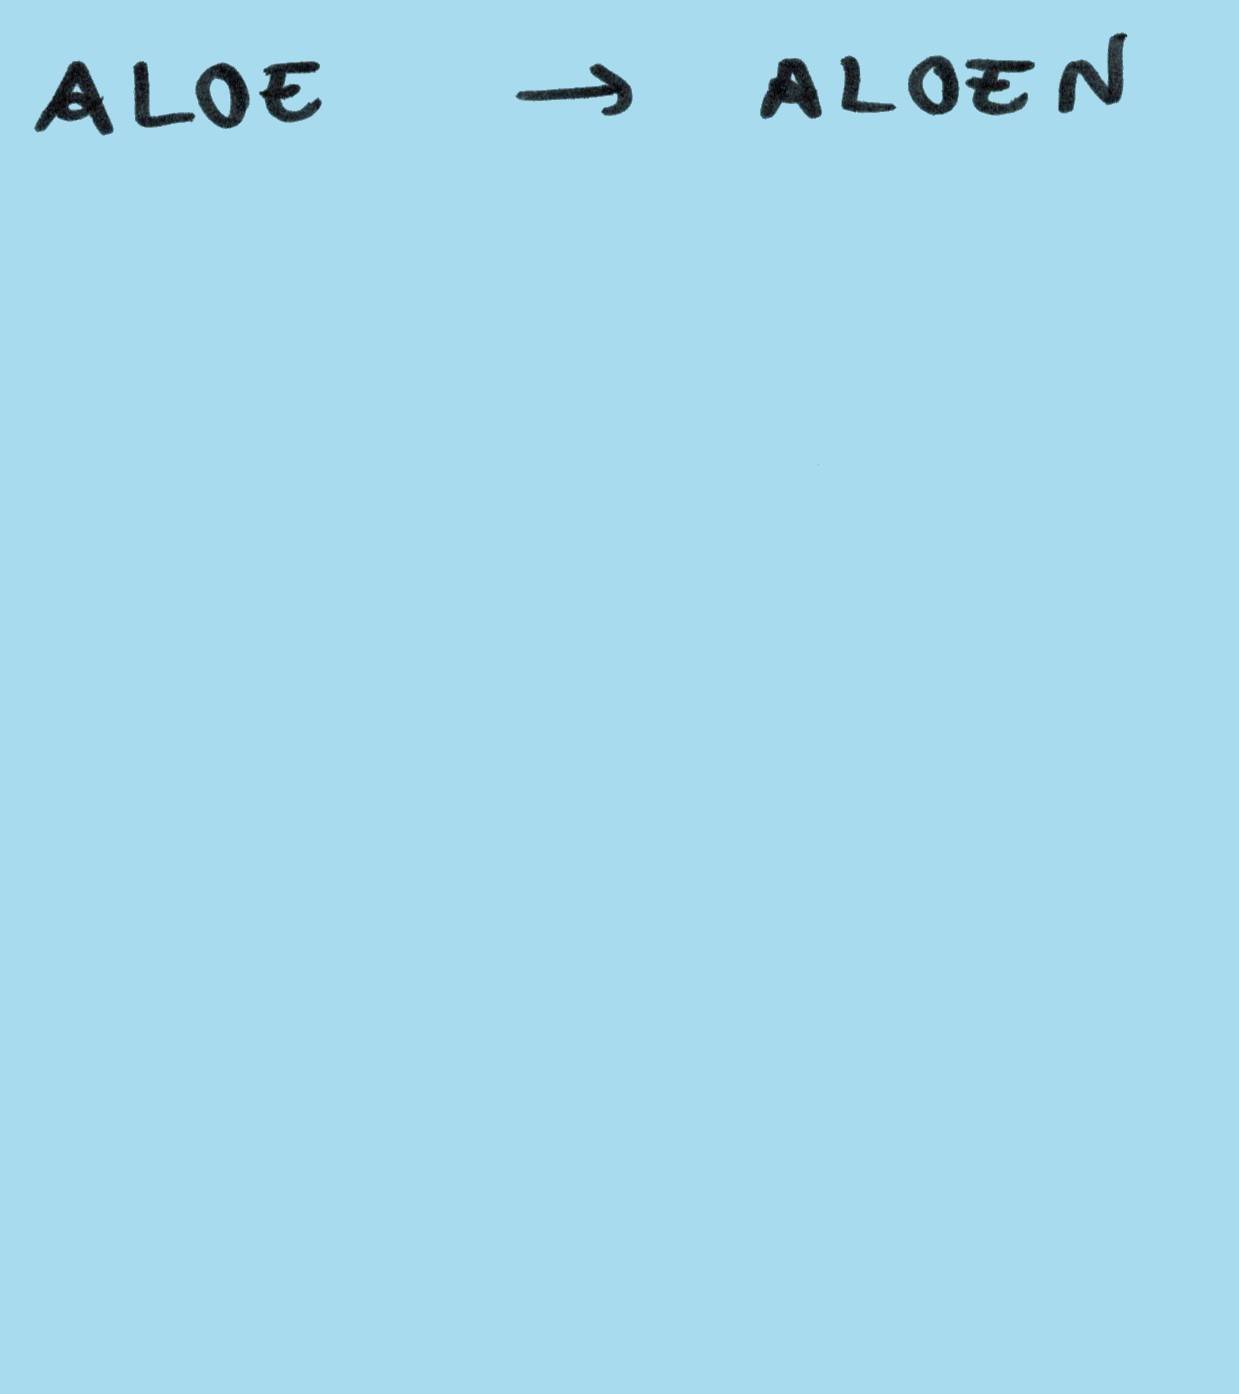 ALOE → ALOEN